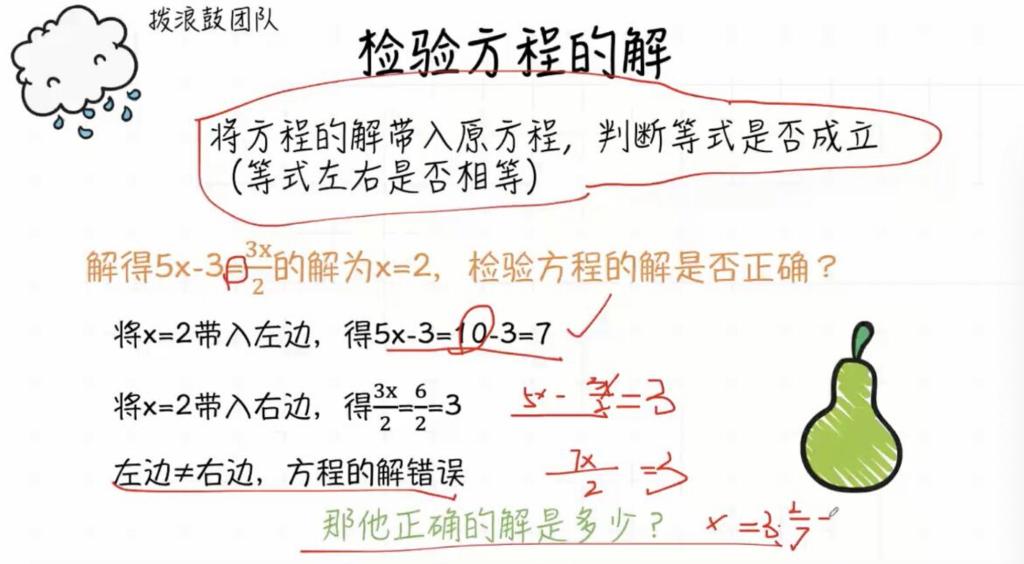 拨浪鼓团队
检验方程的解
将方程的解带入原方程，判断等式是否成立
（等式左右是否相等）
解得5x-3=3x/2的解为x=2，检验方程的解是否正确？
将x=2带入左边，得5x-3=10-3=7
将x=2带入右边，得3x/2=6/2=3
5x - 3x/2 = 3
左边≠右边，方程的解错误
7x/2 = 3
那他正确的解是多少？
x = 3·2/7